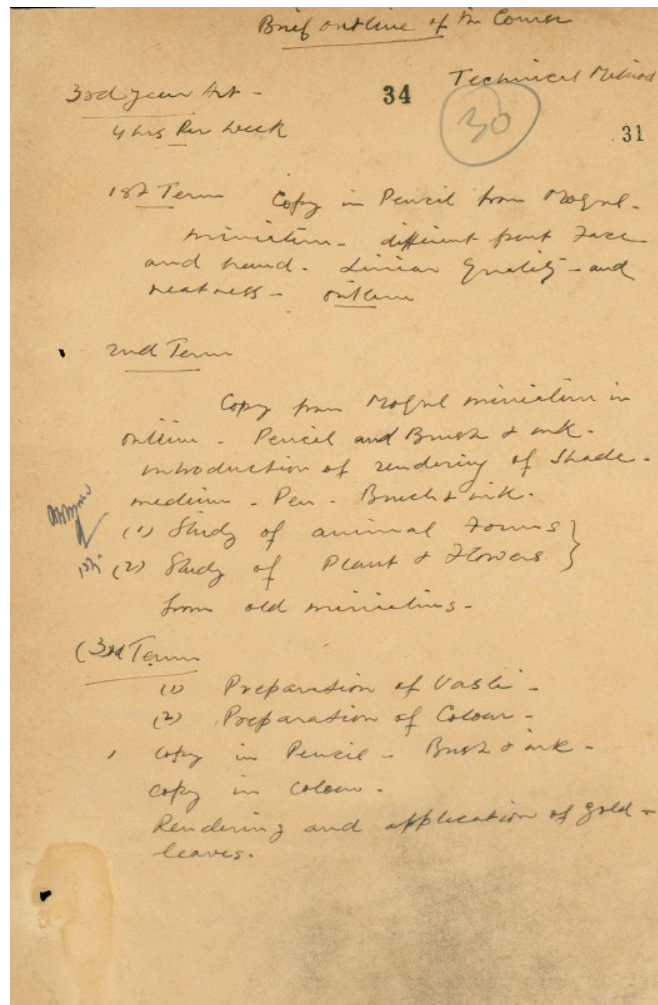 Brief outline of the Course
Technical Method
3rd year Art -
34
30
4 hrs Per week
31
1st Term Copy in Pencil from Mogul -
miniature - different front Face
and hand - Linear Quality - and
neatness - outline
2nd Term
Copy from Mogul miniature in
outline - Pencil and Brush & ink -
introduction of rendering of Shade -
medium - Pen - Brush & ink -
(1) Study of animal Forms }
(2) Study of Plant & Flowers
from old miniatures -
(3rd Term
(1) Preparation of Vasli -
(2) Preparation of Colour -
Copy in Pencil - Brush & ink -
Copy in Colour -
Rendering and application of gold -
leaves.